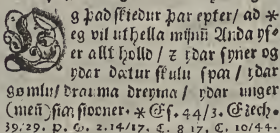 Og þad skiedur þar epter/ ad *
eg vil uthella mijnū Anda yf-
er allt holld / z ydar syner og
ydar dætur skulu spaa / ydar
gømlu/ drauma dreyma / ydar unger
(meñ) sion siooner. * Es. 44/3. Ezech.
39.29. p. 2.14/17. C. 8 17. C. 10/44.